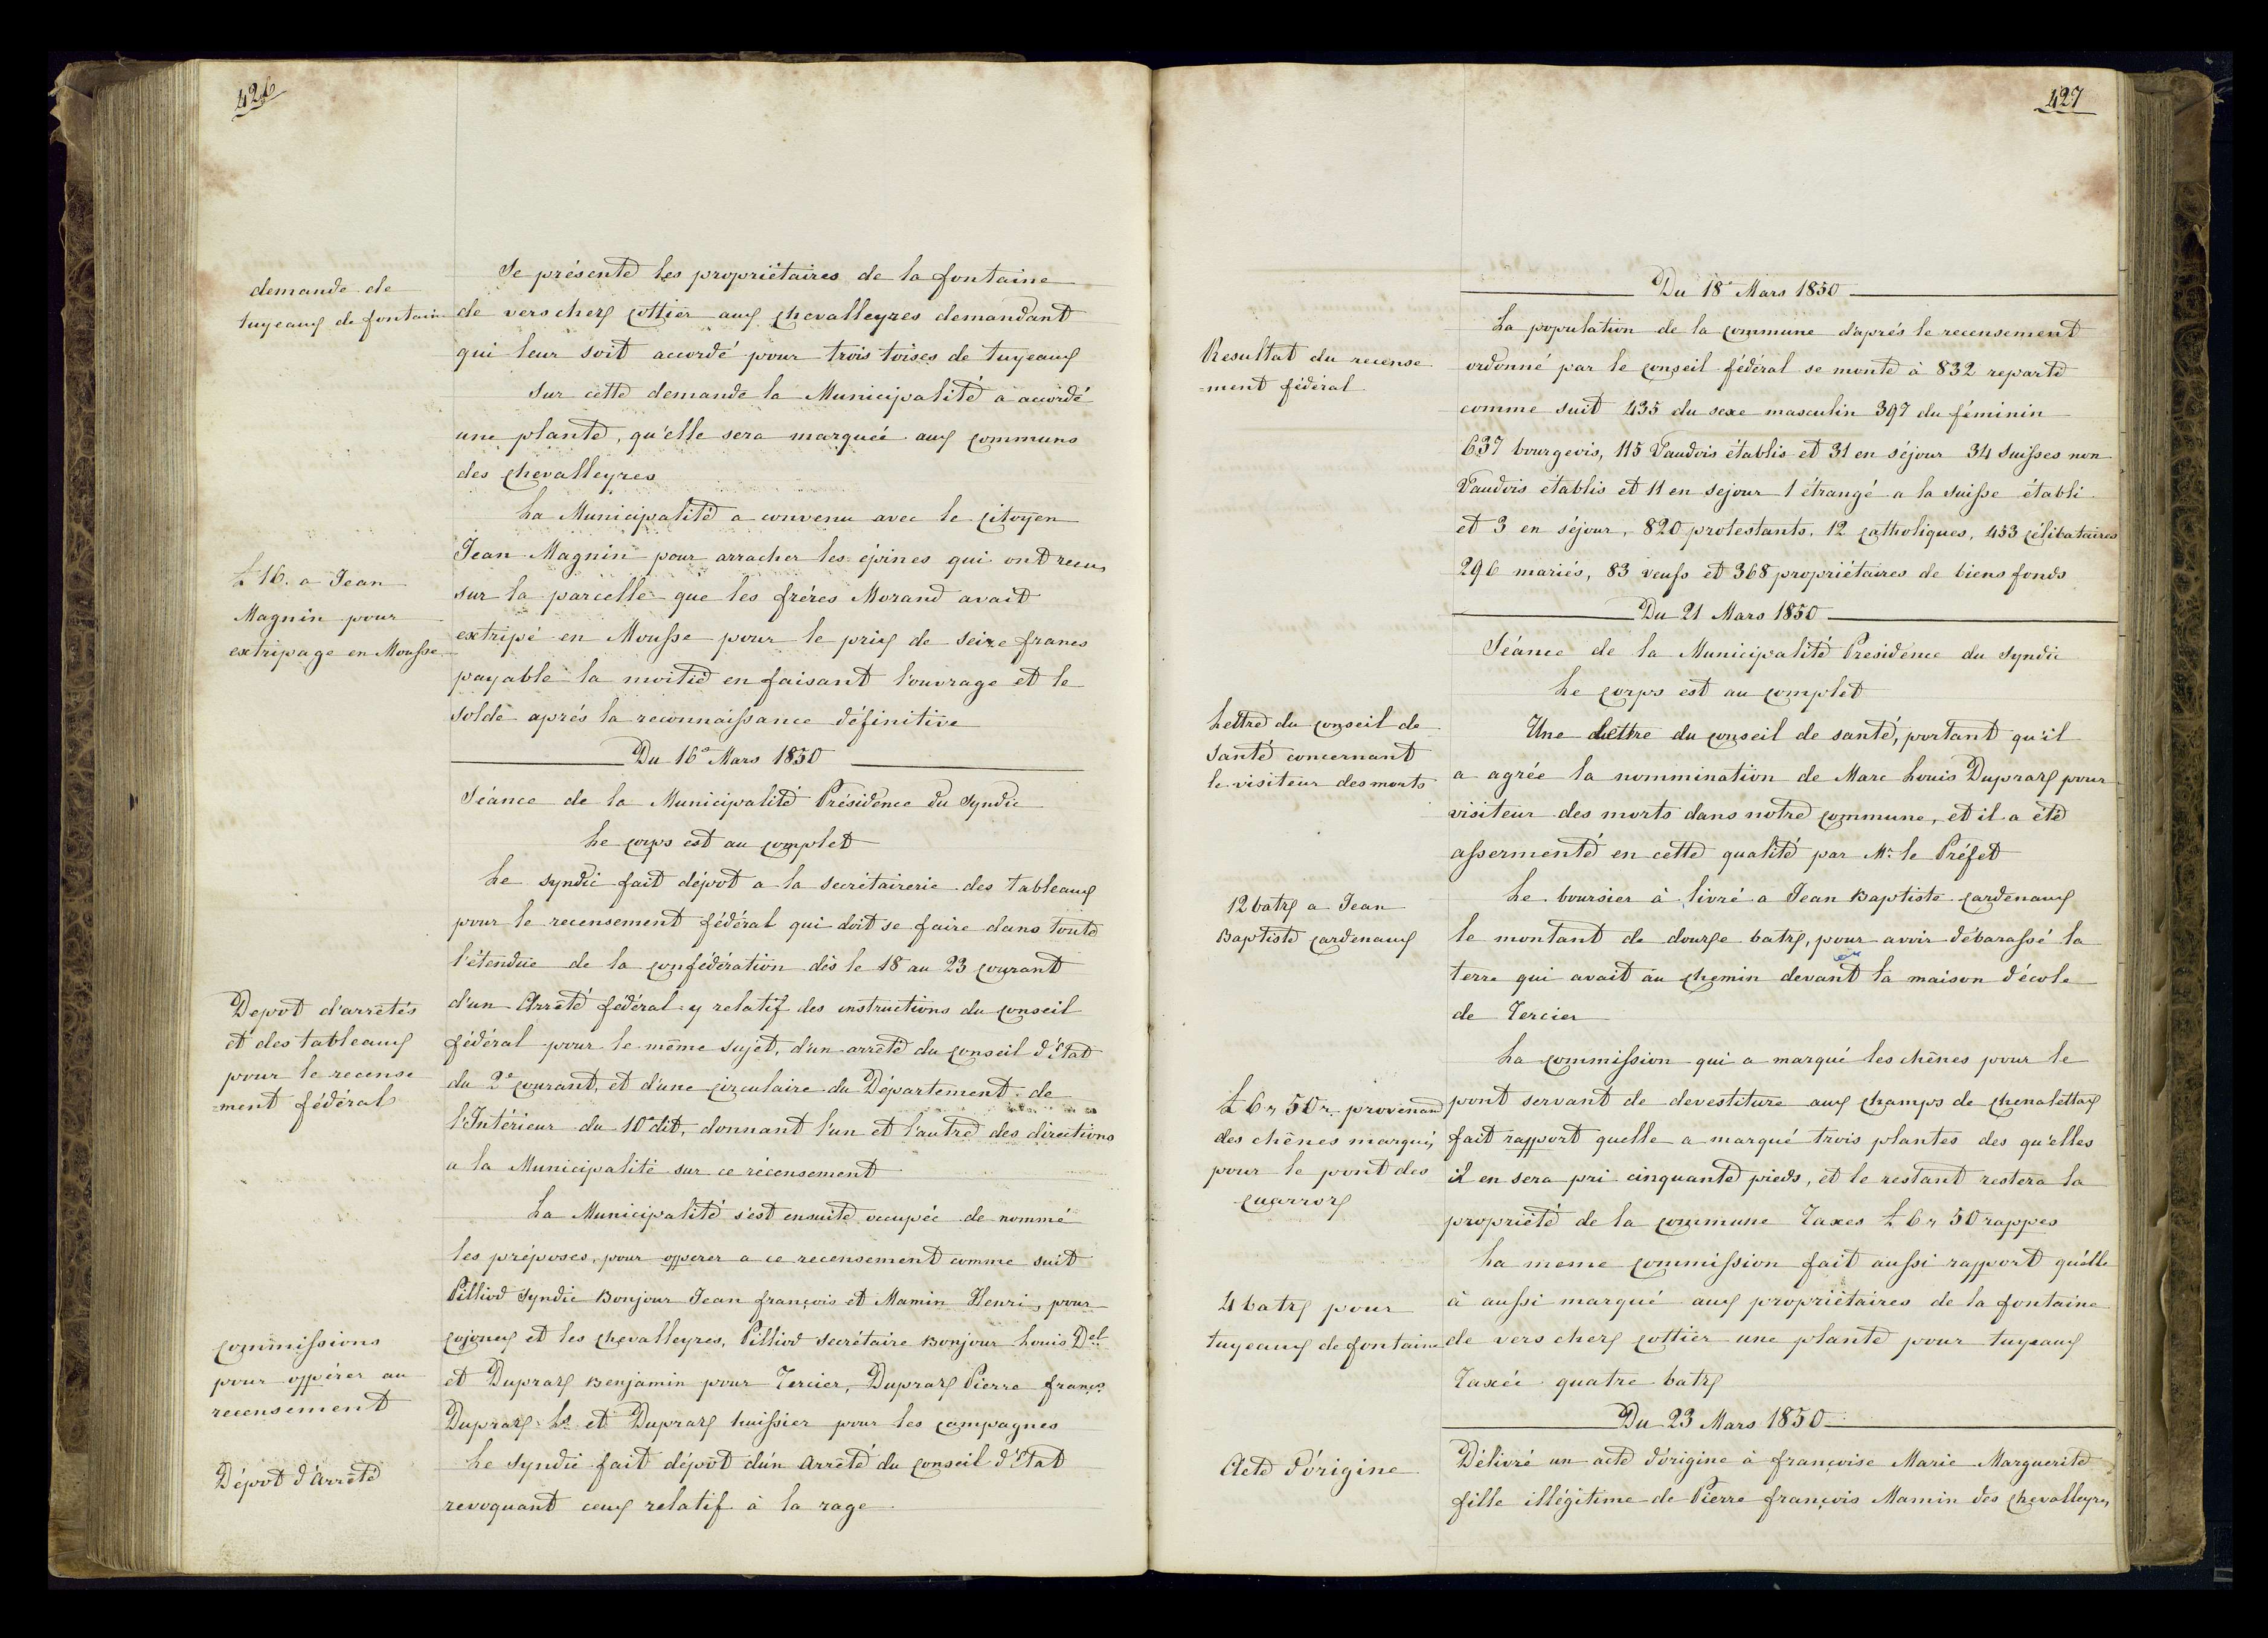 426
demande de
tuyeaux de fontain
Se présente les propriétaires de la fontaine
de vers chez Cottier aux Chevalleyres demandant
qui leur soit accordé pour trois toises de tuyeaux
Sur cette demande la Municipalité a accordé
une plante, qu'elle sera marquée aux communs
des Chevalleyres
£ 16. a Jean
Magnin pour
extripage en Mousse
La Municipalité a convenu avec le Citoyen
Jean Magnin pour arracher les épines qui ont recru
sur la parcelle que les fréres Morand avait
extripé en Mousse pour le prix de seize francs
payable la moitié en faisant l'ouvrage et le
solde aprés la reconnaissance définitive
Du 16e Mars 1850
Séance de la Municipalité Présidence du Syndic
Le Corps est au Complet
Depot d'arrêtés
et des tableaux
pour le recense
-ment fédéral
Le Syndic fait dépot a la secrétairerie des tableaux
pour le recensement fédéral qui doit se faire dans toute
l'étendue de la Confédération dès le 18 au 23 Courant
d'un Arrêté fédéral y relatif des instructions du Conseil
fédéral pour le même sujet, d'un arrêté du Conseil d'Etat
du 2e Courant, et d'une Circulaire du Département de
l'Intérieur du 10e dit, donnant l'un et l'autre des directions
a la Municipalité sur ce récensement
commissions
pour oppérer au
recensement
La Municipalité s'est ensuite occupée de nommé
les préposes, pour opperer a ce recensement comme suit
Pilliod Syndic Bonjour Jean françois et Mamin Henri, pour
Cojonex et les Chevalleyres, Pilliod secrétaire Bonjour Louis Del
et Dupraz Benjamin pour Tercier, Dupraz Pierre françs
Dupraz Ls et Dupraz huissier pour les Campagnes
Dépot d'Arrêté
Le Syndic fait dépôt d'un Arrêté du Conseil d'Etat
revoquant ceux relatif à la rage
427
Du 18e Mars 1850
Resultat du recense
-ment fédéral
La population de la Commune d'aprés le recensement
ordonné par le Conseil fédéral se monte à 832 reparte
comme suit 435 du sexe masculin 397 du féminin
637 bourgeois, 115 Vaudois établis et 31 en séjour 34 Suisses non
Vaudois établis et 11 en sejour 1 étrangé a la Suisse établi
et 3 en séjour, 820 protestants, 12 Catholiques, 453 Célibataires
296 mariés, 83 veufs et 368 propriétaires de biens fonds
Du 21 Mars 1850
Séance de la Municipalité Presidence du Syndic
Le Corps est au Complet
Lettre du Conseil de
Santé concernant
le visiteur des morts
Une Lettre du Conseil de santé, portant qu'il
a agrée la nommination de Marc Louis Dupraz pour
visiteur des morts dans notre Commune, et il a été
assermenté en cette qualité par Mr le Préfet
12 batz a Jean
Baptiste Cardenaux
Le boursier à livré a Jean Baptiste Cardenaux
le montant de dourze batz, pour avoir débarassé la
terre qui avait au Chemin devant la maison d'école
de Tercier
£ 6 " 50 r. provenand
des chênes marqués
pour le pont des
Quarroz
La Commission qui a marqué les chênes pour le
pont servant de devestiture aux Champs de Chenalettaz
fait rapport quelle a marqué trois plantes des qu'elles
il en sera pri cinquante pieds, et le restant restera la
propriété de la Commune Taxes £ 6 " 50 rappes
4 batz pour
tuyeaux de fontaine
La meme Commission fait aussi rapport qu'elle
à aussi marqué aux propriétaires de la fontaine
de vers chez Cottier une plante pour tuyeaux
Taxée quatre batz
Du 23 Mars 1850
Acte d'origine
Délivré un acte d'origine à françoise Marie Marguerite
fille illégitime de Pierre françois Mamin des Chevalleyres